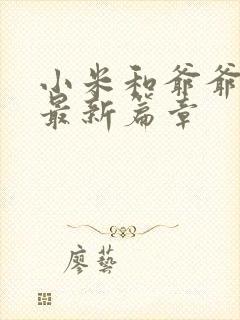 小米和爷爷
最新篇章
廖藝